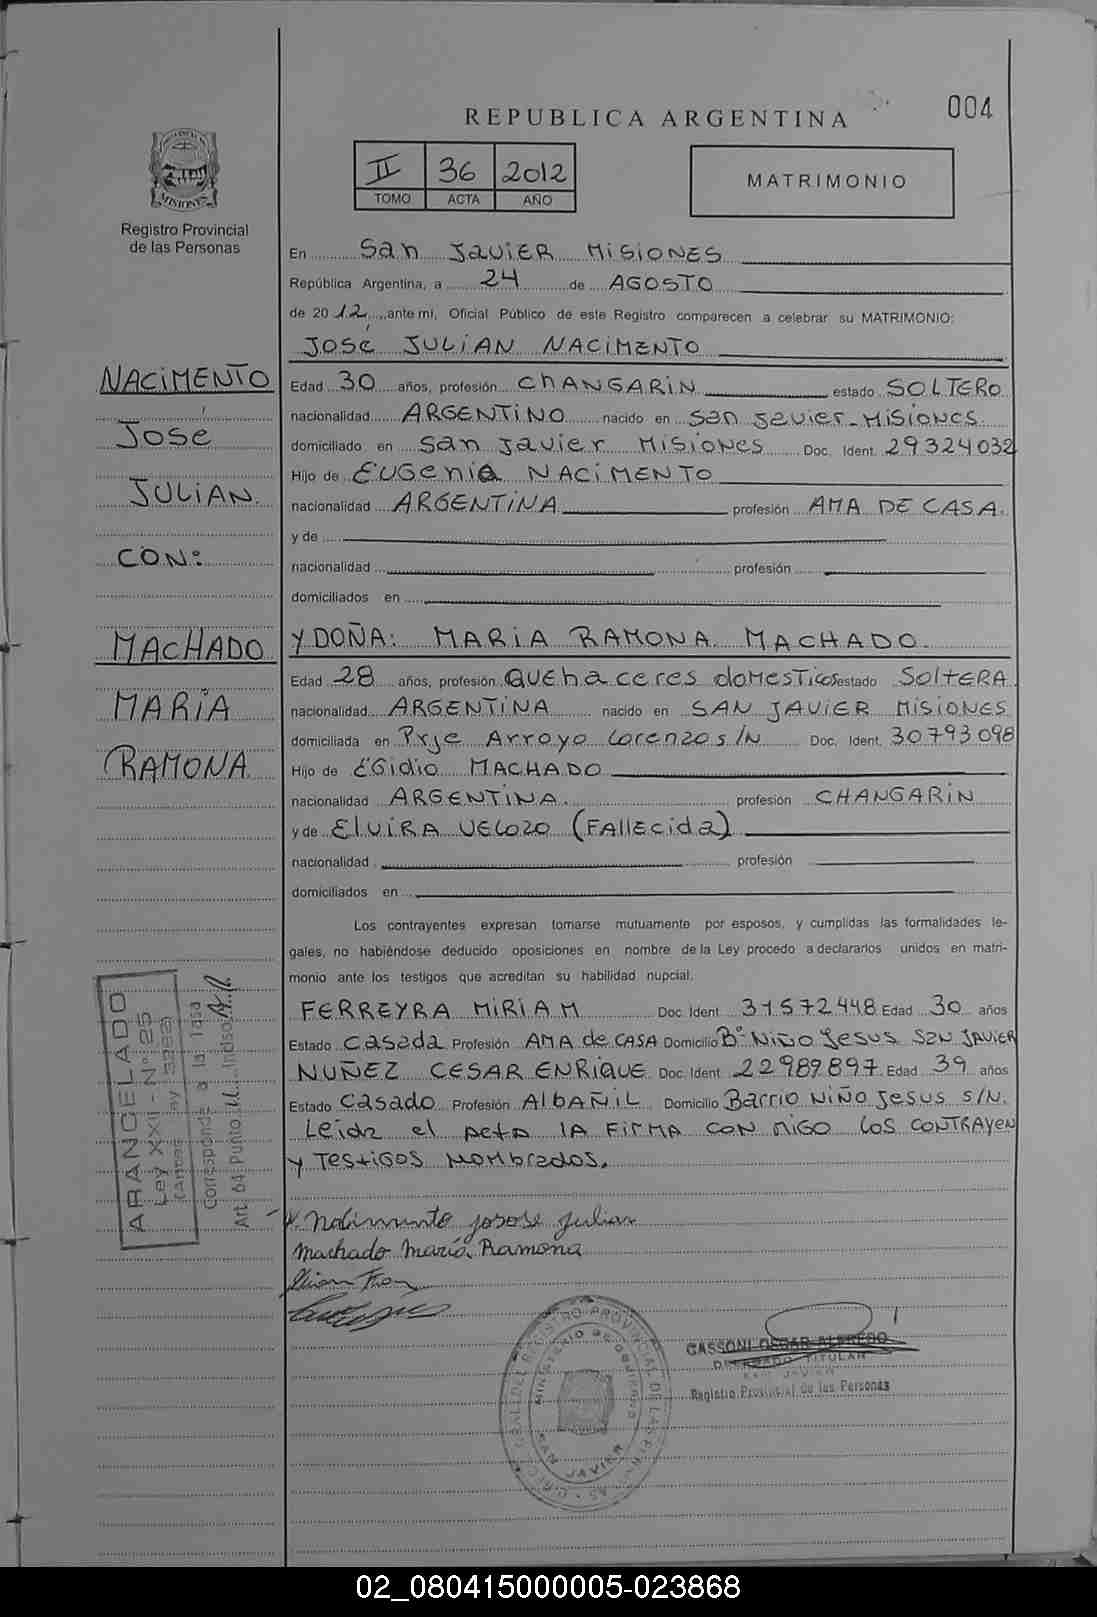 004
REPUBLICA ARGENTINA
II 36 2012
TOMO ACTA AÑO
MATRIMONIO
MISIONES
Registro Provincial
de las Personas
En San JAVIER MiSiONES
República Argentina, a 24 de AGOSTO
de 20 12, ante mí, Oficial Público de este Registro comparecen a celebrar su MATRIMONIO:
JOSÉ JULIAN NACIMENTO
Edad 30 años, profesión CHANGARIN estado SOLTERO
nacionalidad ARGENTINO nacido en San Javier - MISIONES.
domiciliado en San Javier MISIONES Doc. Ident. 29324032
Hijo de EUGENIA NACIMENTO
nacionalidad ARGENTINA profesión AMA DE CASA.
y de
nacionalidad profesión
domiciliados en
Y DOÑA: MARIA RAMONA MACHADO.
Edad 28 años, profesión QUEhaceres doMESTICOS estado SOLTERA
nacionalidad ARGENTINA nacido en SAN JAVIER MISIONES
domiciliada en Prje Arroyo Lorenzo s/N Doc. Ident. 30793098
Hijo de EGidio MACHADO
nacionalidad ARGENTINA. profesión CHANGARIN
y de ELVIRA VELOZO (FALLECIDA)
nacionalidad profesión
domiciliados en
Los contrayentes expresan tomarse mutuamente por esposos, y cumplidas las formalidades le-
gales, no habiéndose deducido oposiciones en nombre de la Ley procedo a declararlos unidos en matri-
monio ante los testigos que acreditan su habilidad nupcial.
FERREYRA MIRIAM Doc. Ident. 31572448 Edad 30 años
Estado Casada Profesión AMA de CASA Domicilio Bº NIÑO JESUS SAN JAVIER
NUÑEZ CESAR ENRIQUE Doc. Ident. 22989897 Edad 39 años
Estado Casado Profesión AlbAÑIL Domicilio Barrio NIÑO JESUS S/N.
Leida el Acta LA FIRMA CON MIGO LOS CONTRAYEN
y TESTIGOS NOMbrados.
NACIMENTO
JOSE
JULIAN.
CON:
MACHADO
MARIA
RAMONA
ARANCELADO
Ley XXII - Nº 25
Corresponde a la Tasa
Art. 64 Punto Inciso
Nacimento josose Julian
Machado Maria Ramona
GASSONI OSCAR ALFREDO
DELEGADO TITULAR
SAN JAVIER
Registro Provincial de las Personas
SAN JAVIER
02_080415000005-023868